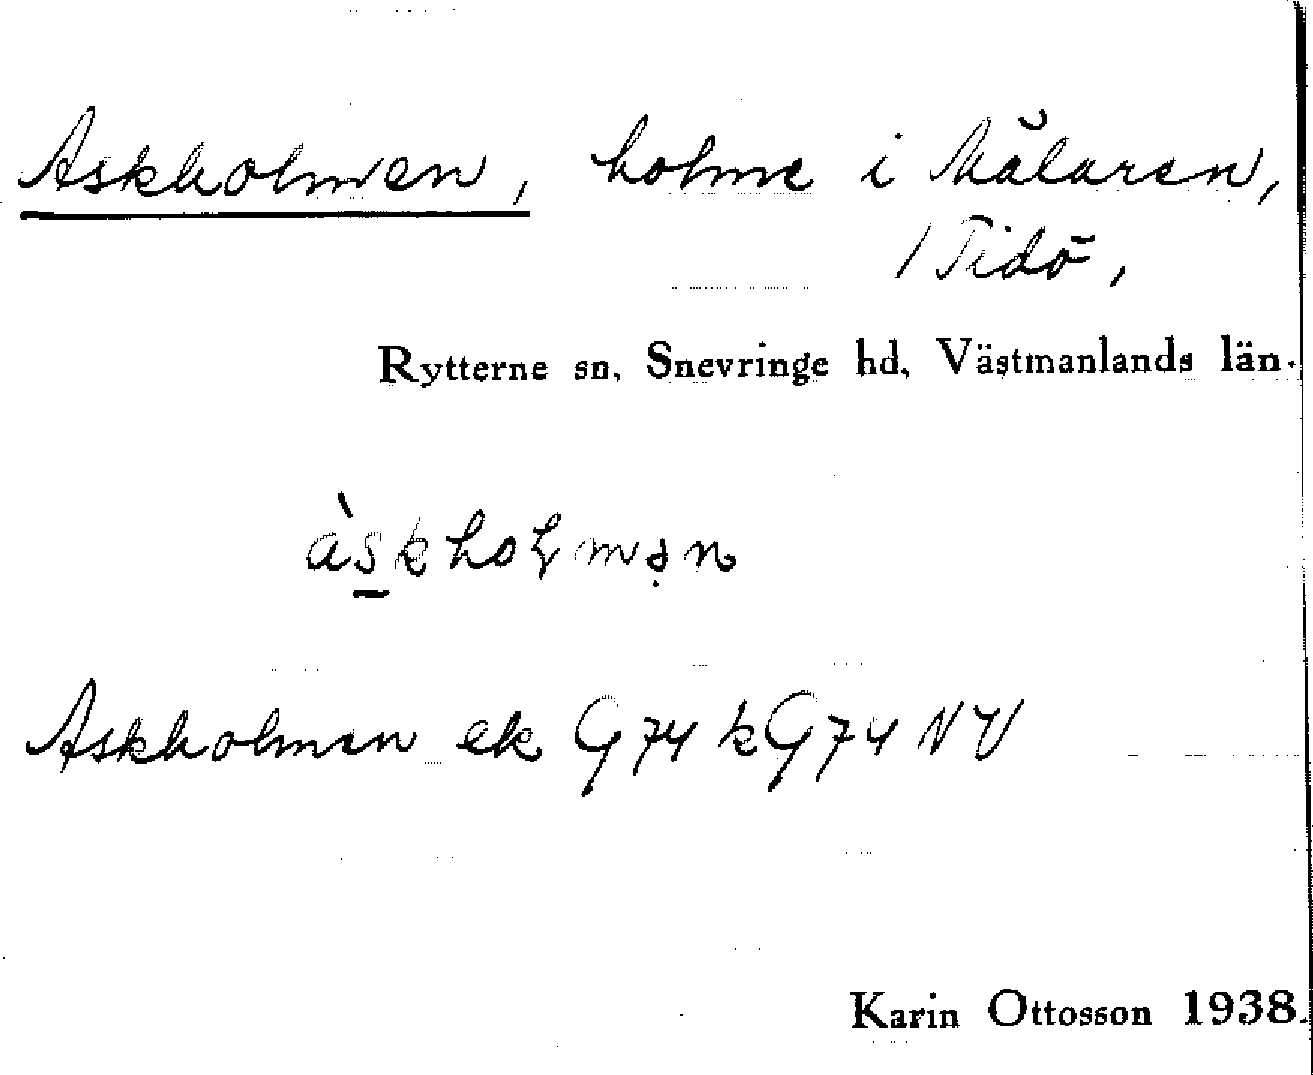 Askholmen, holme i Mälaren,
/ Tidö,
Rytterne sn, Snevringe hd, Västmanlands län.
àskholmən
Askholmen ek G 74 k G 74 NV
Karin Ottosson 1938.